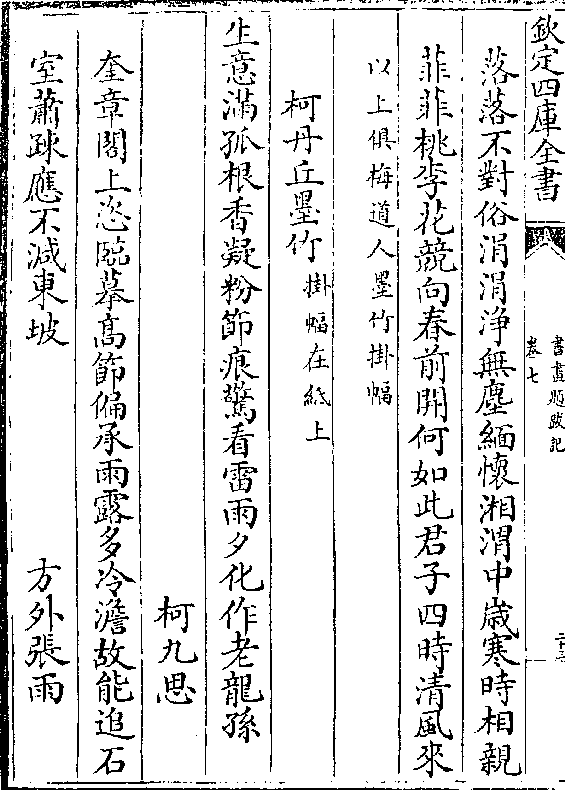 欽定四庫全書
書畫題跋記
卷七
落落不對俗涓涓淨無塵緬懷湘渭中歲寒時相親
菲菲桃李花競向春前開何如此君子四時清風來
以上俱梅道人墨竹掛幅
柯丹丘墨竹掛幅在紙上
生意滿孤根香凝粉節痕驚看雷雨夕化作老龍孫
柯九思
奎章閣上恣臨摹髙節偏承雨露多冷澹故能追石
室蕭踈應不減東坡
方外張雨